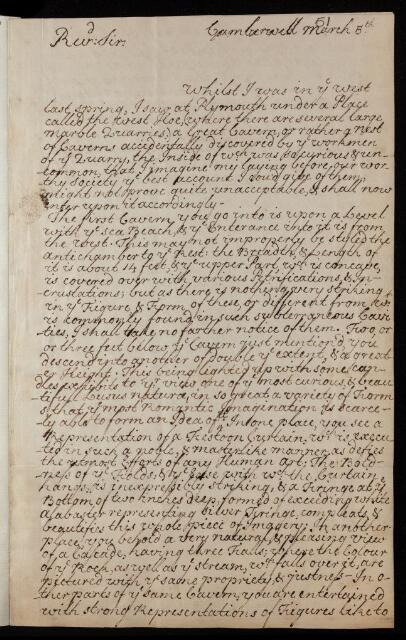 Camberwell March 5th
51
Revd: Sir
Whilst I was in ye West
last Spring, I saw at Plymouth under a Place
called the West Hoe, (where there are several large
Marble Quarries) a Great Cavern, or rather a Nest
of Caverns accidentally discovered by ye workmen
of ye Quarry, the Inside of wch was so curious & un-
common, that I imagine my laying before, our wor-
thy Society, ye best account I could give of them,
might not prove quite unacceptable, & shall now
enter upon it accordingly-
The first Cavern, you go into is upon a Level
with ye Sea Beach, & ye Enterance into it is from
the West. This may not improperly be styled the
antichamber to ye rest: the Breadth, & Length of
it is about 14 feet, & ye upper Part, wch is concave,
is covered over with various Petrifications, & In-
crustations; but as there is nothing very striking
in ye Figure & Form of these, or different from wt
is commonly found in such subterraneous Cavi-
ties, I shall take no farther notice of them. Two, or
or three feet below ye Cavern just mention'd, you
descend into another of double ye extent, & a great-
er Height. This being lighted up with some can-
dles exhibits to yr view one of ye most curious, & beau-
tifull Lusus naturæ, in so great a variety of Form
s, that ye most Romantic Imagination is scarce-
ly able to form an Idea of. In one place, you see a
Representation of a Festoon Curtain, wch is execu-
ted in such a noble, & masterlike manner, as defies
the utmost Efforts of any Human Art; The Bold-
ness of ye Folds, & ye Ease with wch the Curtain
hangs, is inexpressibly striking, & a Fringe at ye
Bottom of two inches deep, formed of exceeding white
Alabaster representing silver Fringe, compleats, &
beautifies this whole piece of Imagery. In another
place, you behold a very natural, & pleasing view
of a Cascade, having three Falls; where the Colour
of ye Rock, as well as ye stream, wch falls over it, are
pictured with ye same propriety, & justness- In o-
ther parts of ye same Cavern, you are entertained
with strong Representations of Figures like to